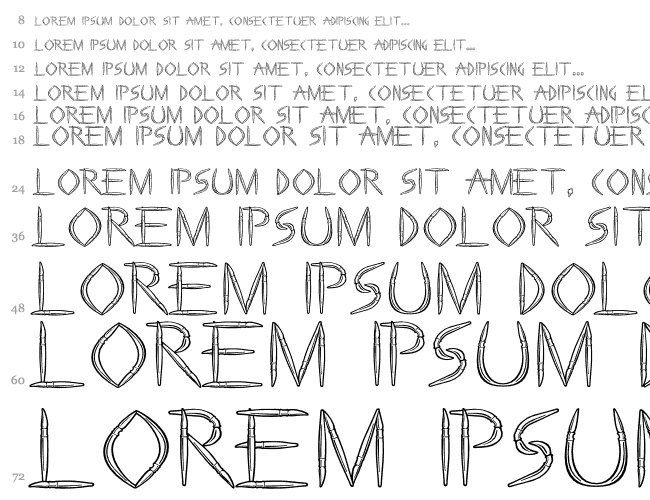 8 LOREM IPSUM DOLOR SIT AMET, CONSECTETUER ADIPISCING ELIT...
10 LOREM IPSUM DOLOR SIT AMET, CONSECTETUER ADIPISCING ELIT...
12 LOREM IPSUM DOLOR SIT AMET, CONSECTETUER ADIPISCING ELIT...
14 LOREM IPSUM DOLOR SIT AMET, CONSECTETUER ADIPISCING EL
16 LOREM IPSUM DOLOR SIT AMET, CONSECTETUER ADIPISC
18 LOREM IPSUM DOLOR SIT AMET, CONSECTETUER
24 LOREM IPSUM DOLOR SIT AMET, CONS
36 LOREM IPSUM DOLOR SIT
48 LOREM IPSUM DOLO
60 LOREM IPSUM D
72 LOREM IPSUM